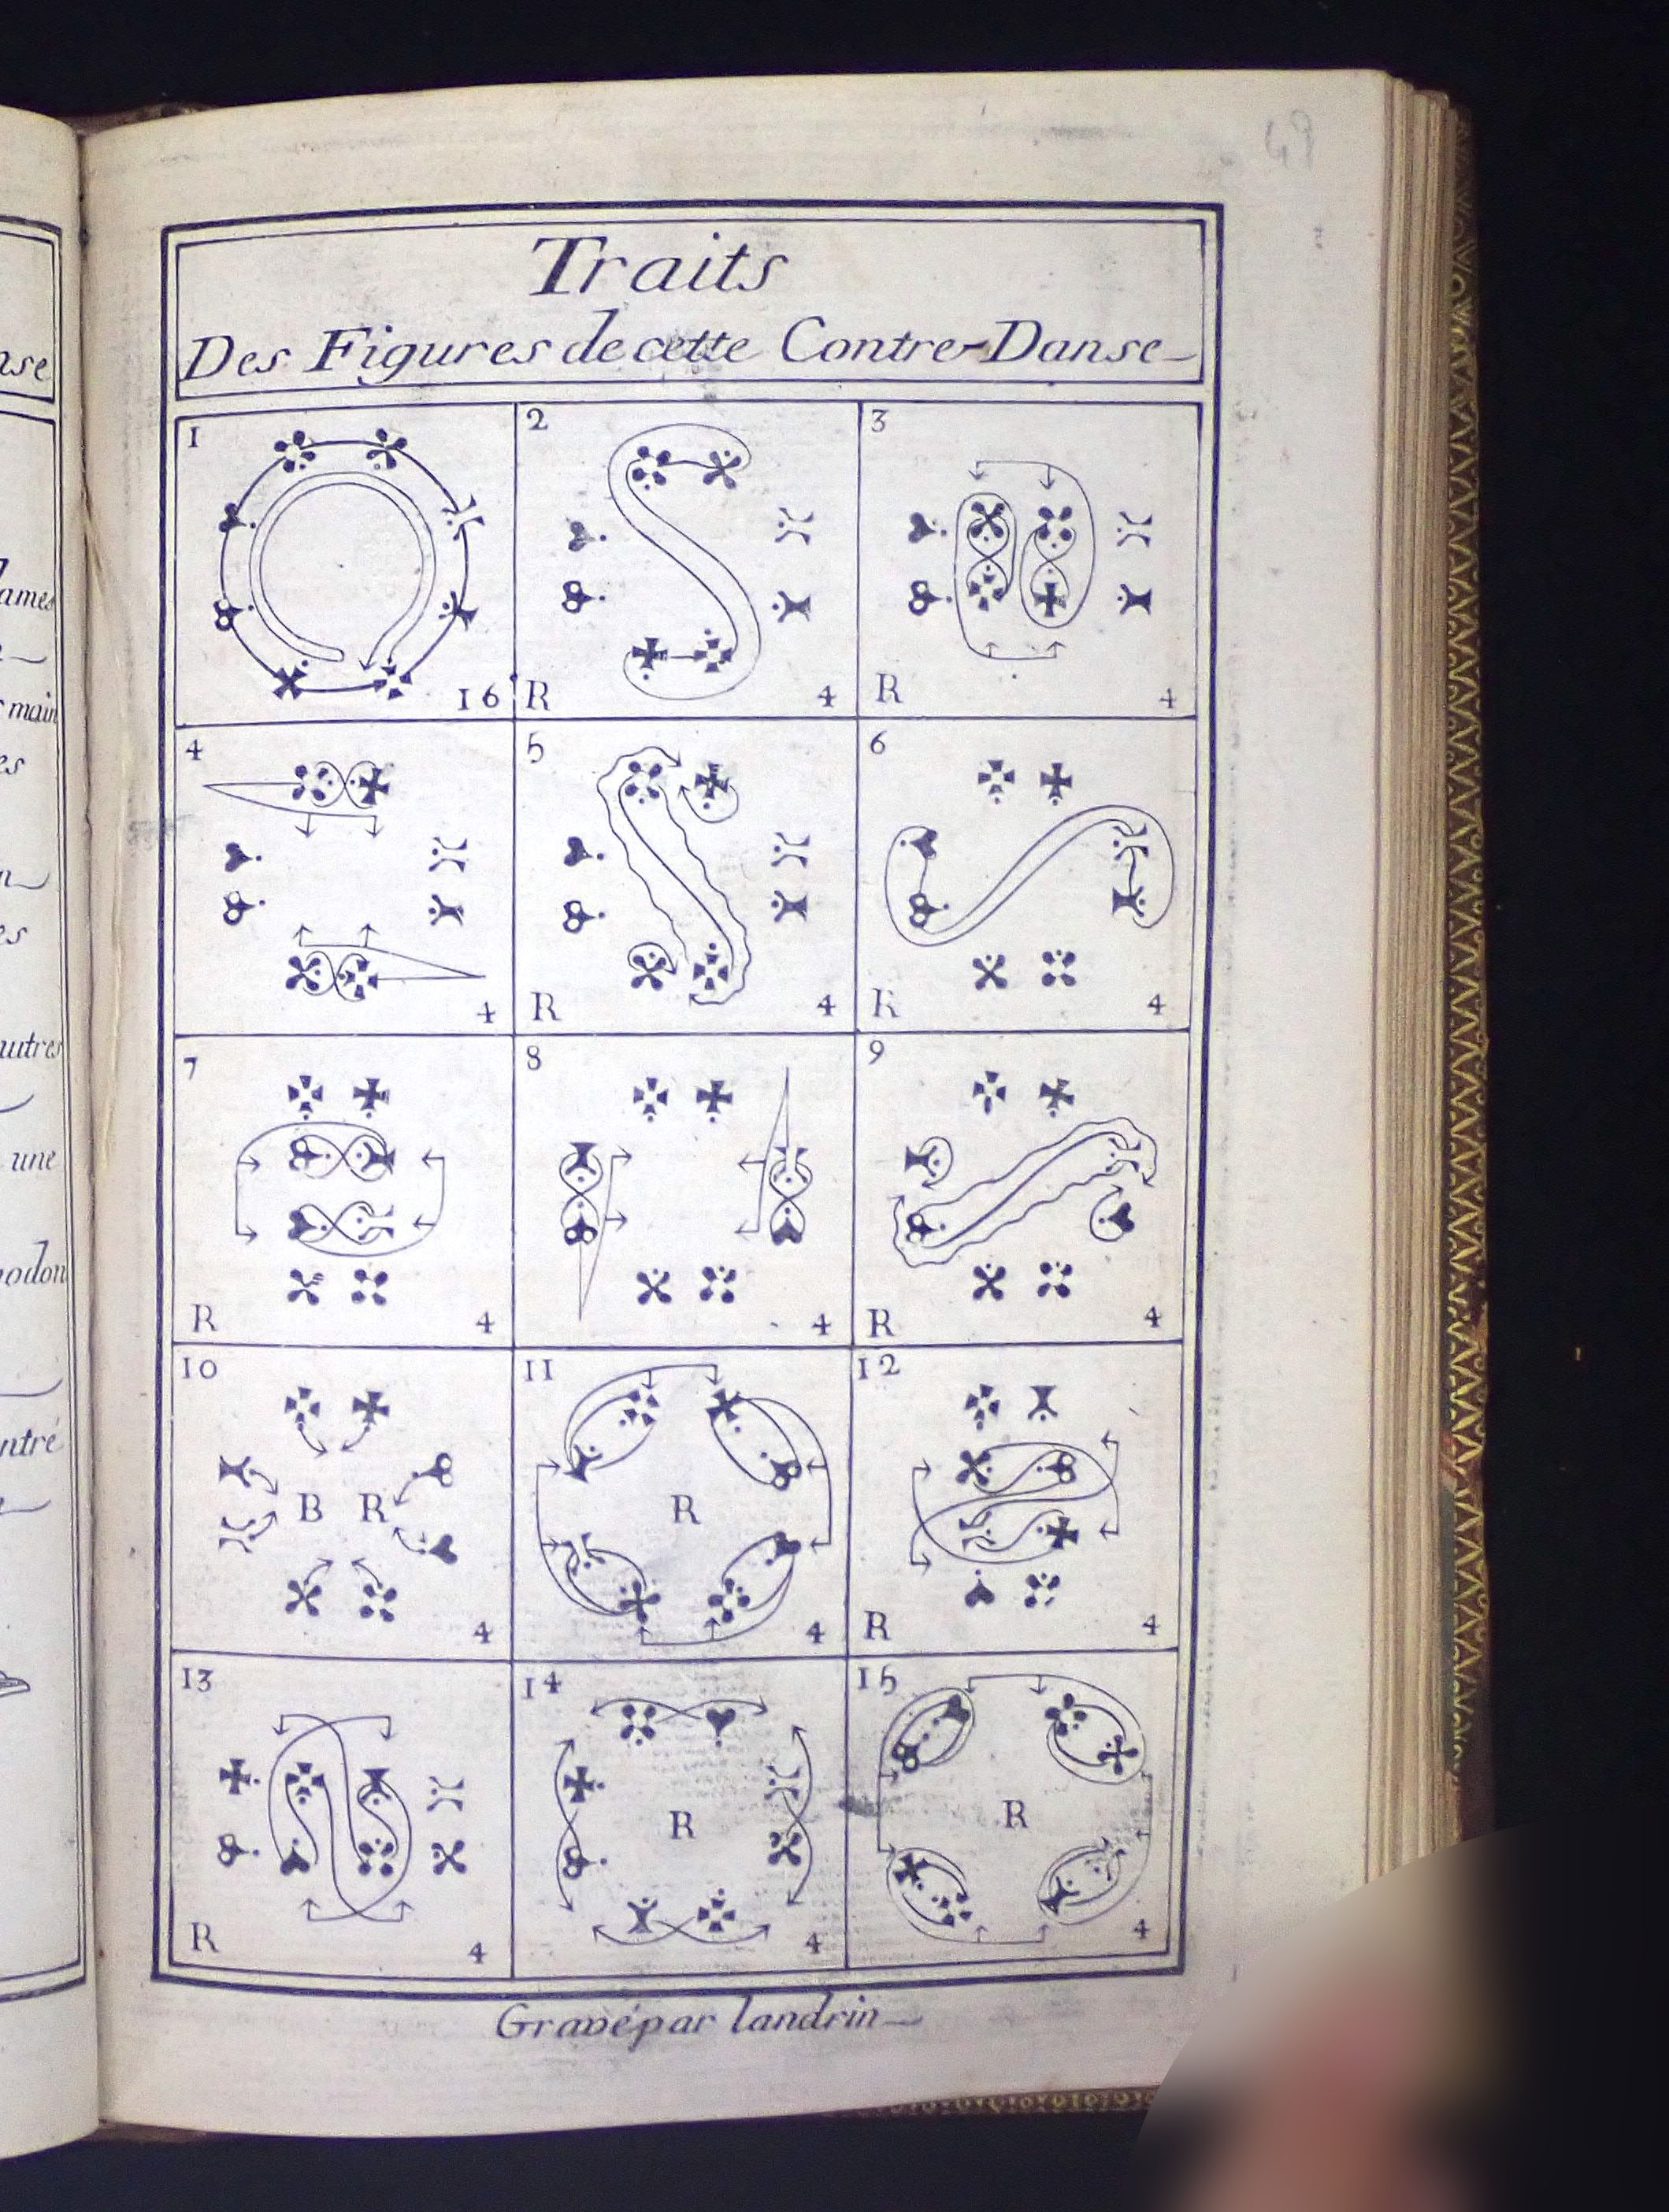 Traits
Des Figures de cette Contre-Danse
1
16
2
R
4
3
R
4
4
4
5
R
4
6
R
4
7
R
4
8
4
9
R
4
10
B R
4
11
R
4
12
R
4
13
R
4
14
R
4
15
R
4
Gravé par landrin
nse
ames
main
es
es
autres
une
odon
ntré